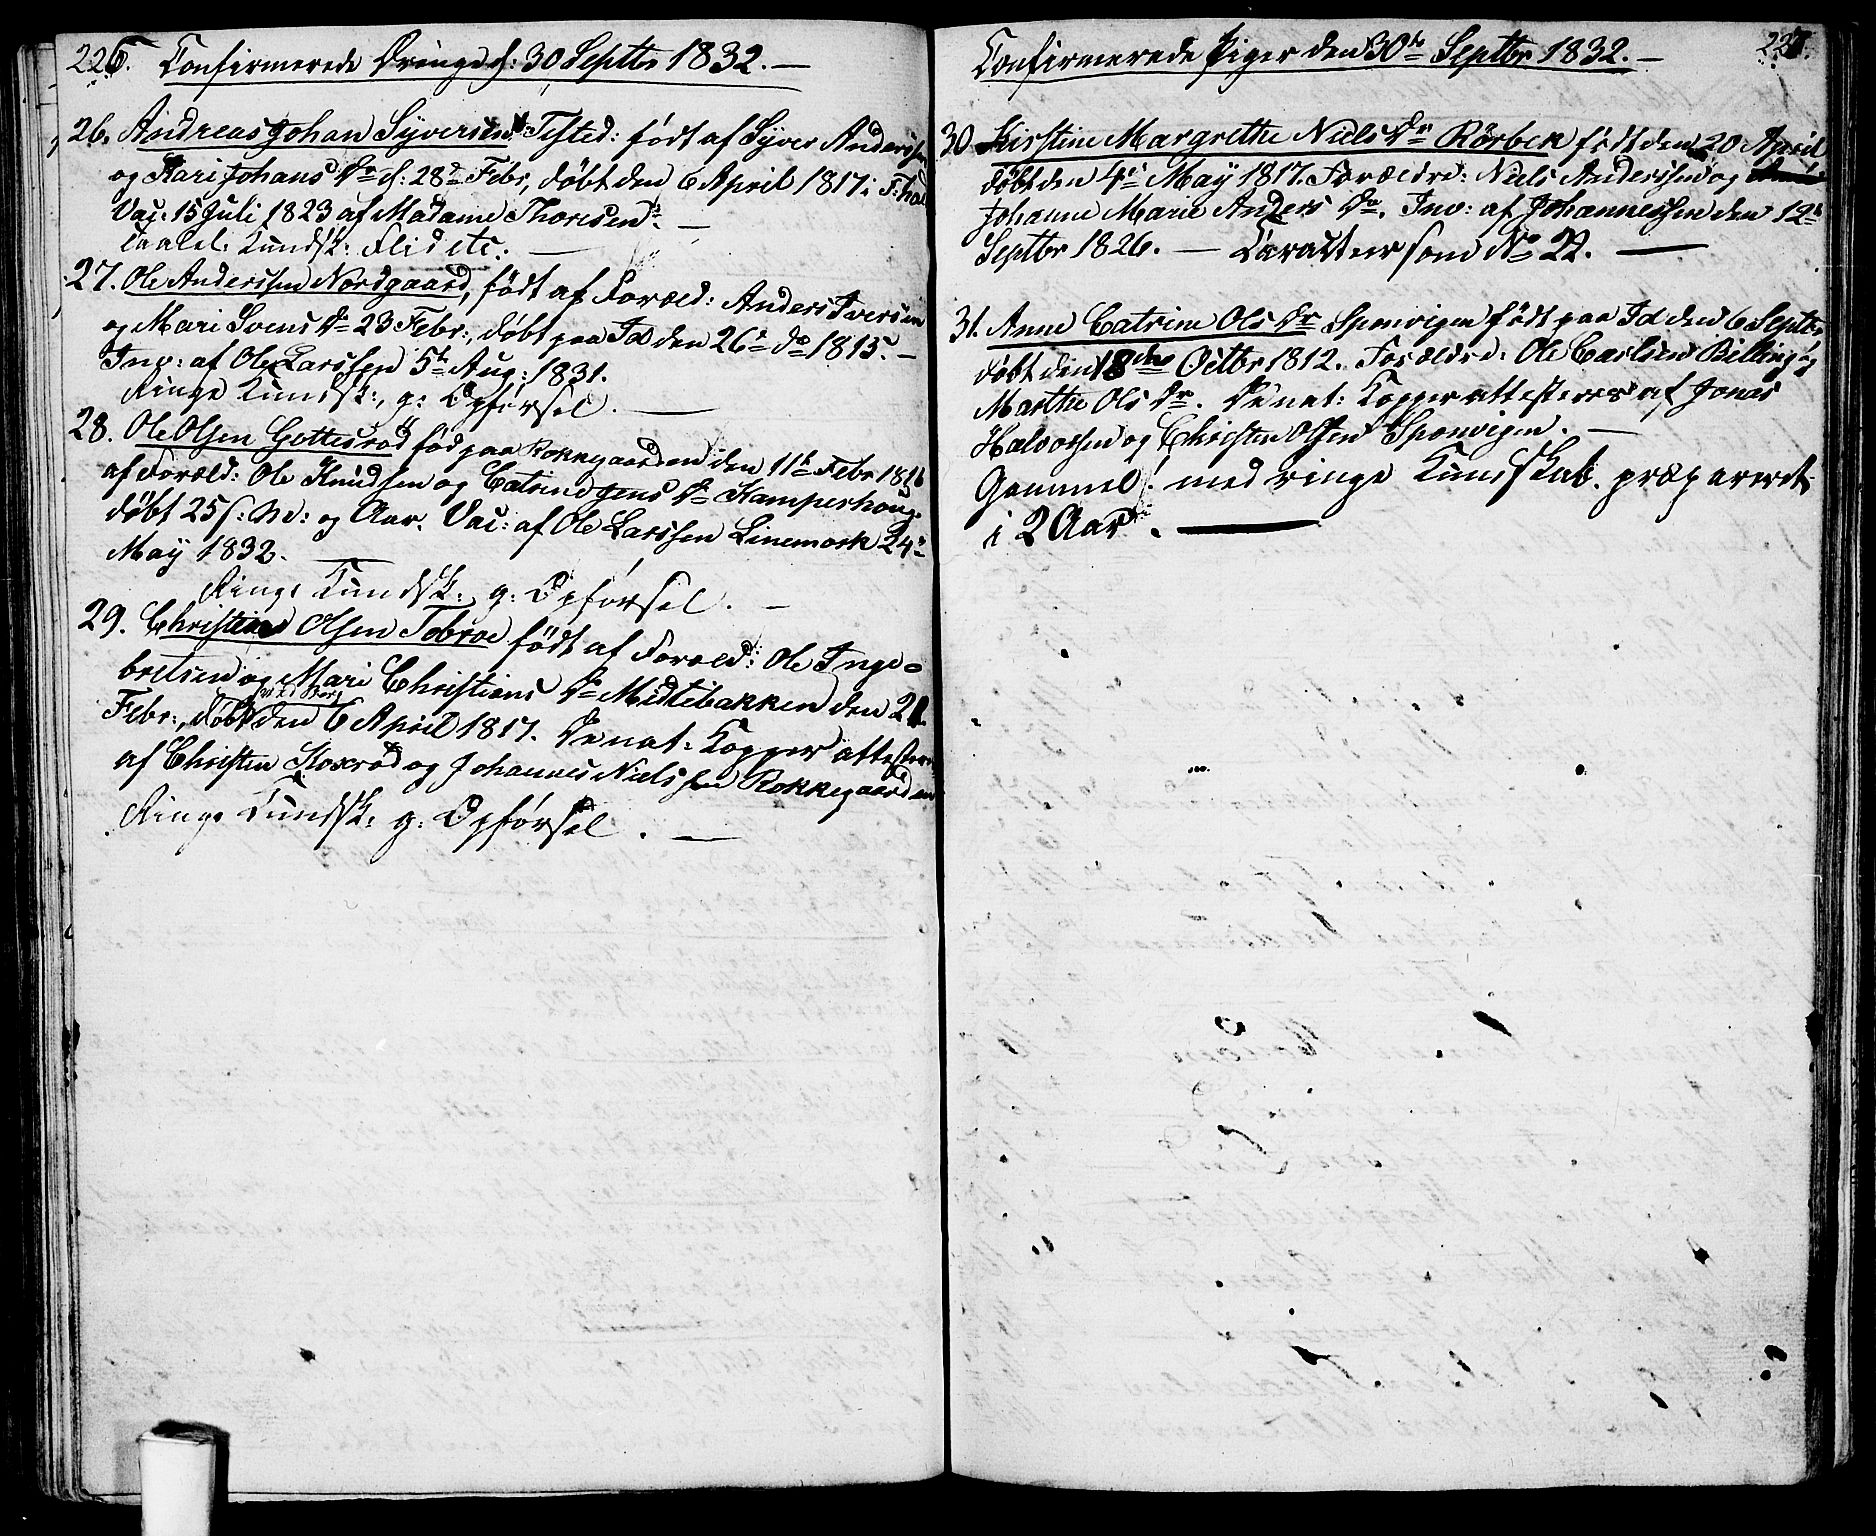 226. Confirmerede Drenge d: 30 Septbr 1832. —
26. Andreas Johan Syversen Tisted: født af Syver Anderssen
og Kari Johans Dr d: 28de Febr, døbt den 6 April 1817 i F:hald
Vac: 15 Juli 1823 af Madame Thoresen. —
Taalel: Kundsk: Flid etc. —
27. Ole Anderssen Nordgaard, født af Foræld: Anders Iversen
og Mari Svens Dr 23 Febr:, døbt paa Id den 26de do 1815. —
Inp: af Ole Larssen 5te Aug: 1831.
Ringe Kundsk:, g: Opførsel. —
28. Ole Olsen Gottesrød fød paa Rokkegaarden den 11te Febr 1816
af Foræld: Ole Knudsen og Catrine Jens Dr Kamperhoug
døbt 25 s: M: og Aar. Vac: af Ole Larssen Linemark 24de
May 1832. —
Ringe Kundsk: g: Opførsel. —
29. Christian Olsen Tobroe født af Foræld: Ole Inge-
bretsen og Mari Christians Dr Midtebakken den 21
Febr:, døbt ved Berg den 6 April 1817. De nat: Kopper attesteres
af Christen Skoxrød og Johannes Nielssen Rokkegaarden
Ringe Kundsk: g: Opførsel. —
Confirmerede Piger den 30te Septbr 1832. — 227.
30. Kirstine Margrethe Niels Dr Rörbek født den 20 April
døbt den 4de May 1817. Forældre: Niels Anderssen og
Johanne Marie Anders Dr. Inv: af Johannessen den 12te
Septbr 1826. — Caracteer som No 22. —
31. Anne Catrine Ols Dr Sponvigen født paa Id den 6 Septbr
døbt den 18de Octbr 1812. Forældre: Ole Carlsen Billing og
Marthe Ols Dr. De nat: Kopper attesteres af Jonas
Halvorsen og Christen Olsen Sponvigen. —
Gammel! med ringe Kundskab. præpareret
i 2 Aar. —